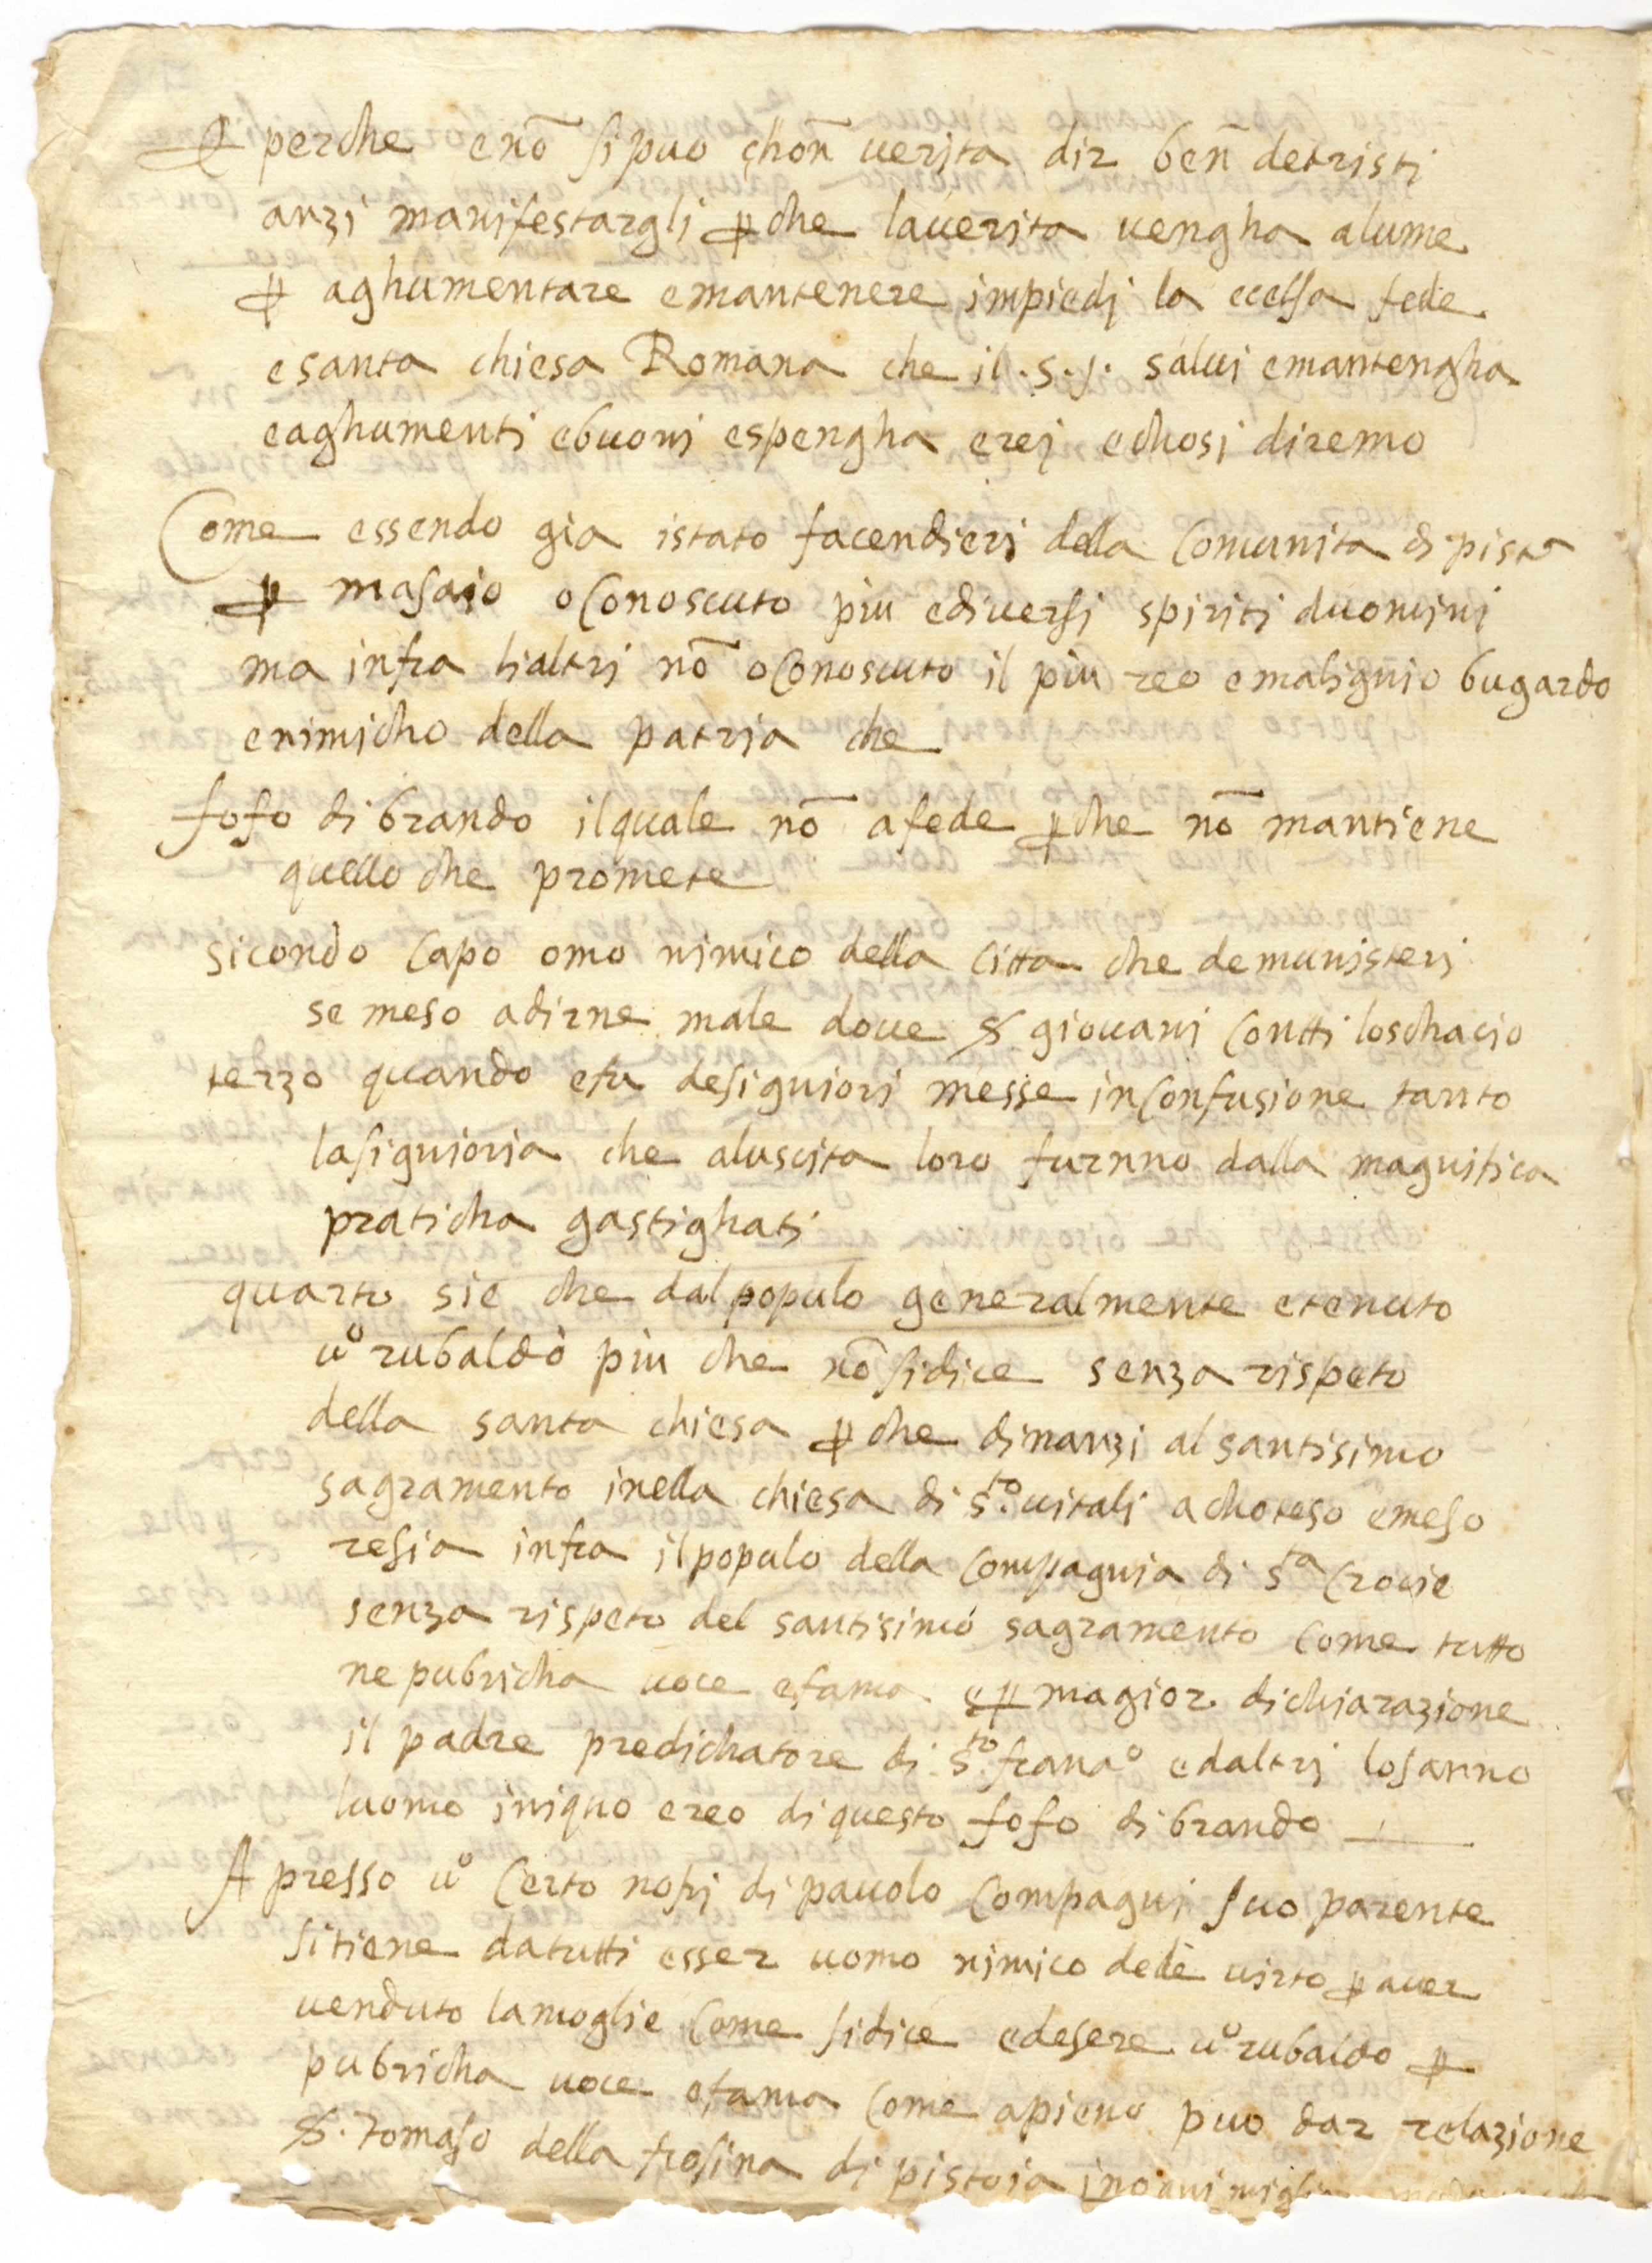 E perche enō si puo chōn uerita dir bēn detristi
anzi manifestargli ꝑche lauerita uengha alume
ꝑ aghumentare emantenere impiedj la ecelsa fede
esanta chiesa Romana che il .s.j. salui emantengha
eaghumenti ebuoni espengha erej echosi diremo
Come essendo gia istato facendieri della Comunita di pista
ꝑ masaio o Conoscuto piu ediuersi spiriti duomini
ma infra lialtri nō o Conoscuto il piu reo emalignio bugardo
enimicho della patria che
fofo di brando ilquale nō a fede ꝑche nō mantiene
quello che promete
sicondo Capo omo nimico della Citta che demunisteri
se meso adirne male doue S. giouani Contti loschacio
terzo quando efu designiori messe inConfusione tanto
lasignioria che aluscita loro furnno dalla magnifica
praticha gastighati
quarto sie che dal populo generalmente etenuto
uº rubaldo piu che nō sidice senza rispeto
della santa chiesa ꝑche dinanzi al santisimo
sagramento inella chiesa di s.to uitali achoteso emeso
resia infra ilpopulo della Compagnia di s.ta Crocie
senza rispeto del santisimo sagramento Come tutto
ne pubricha uoce efama eꝑ magior dichiarazione
il padre predichatore di s.to franco edaltri losanno
luomo iniquo ereo di questo fofo di brando
A presso uº Certo nofri di pauolo Compagni suo parente
sitiene datutti esser uomo nimico dele uirto ꝑ auer
uenduto lamoglie Come sidice edesere uº rubaldo ꝑ
pubricha uoce efama Come apieno puo dar relazione
S. Tomaso della frosina di pistoia